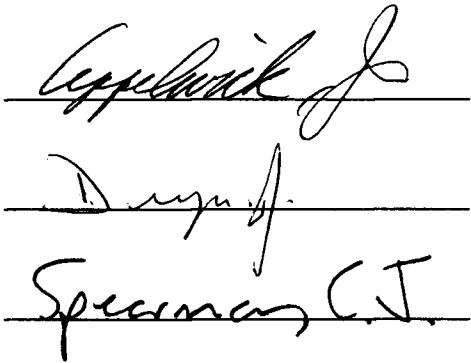 Appelwick, J.
Dwyer, J.
Spearman, C.J.